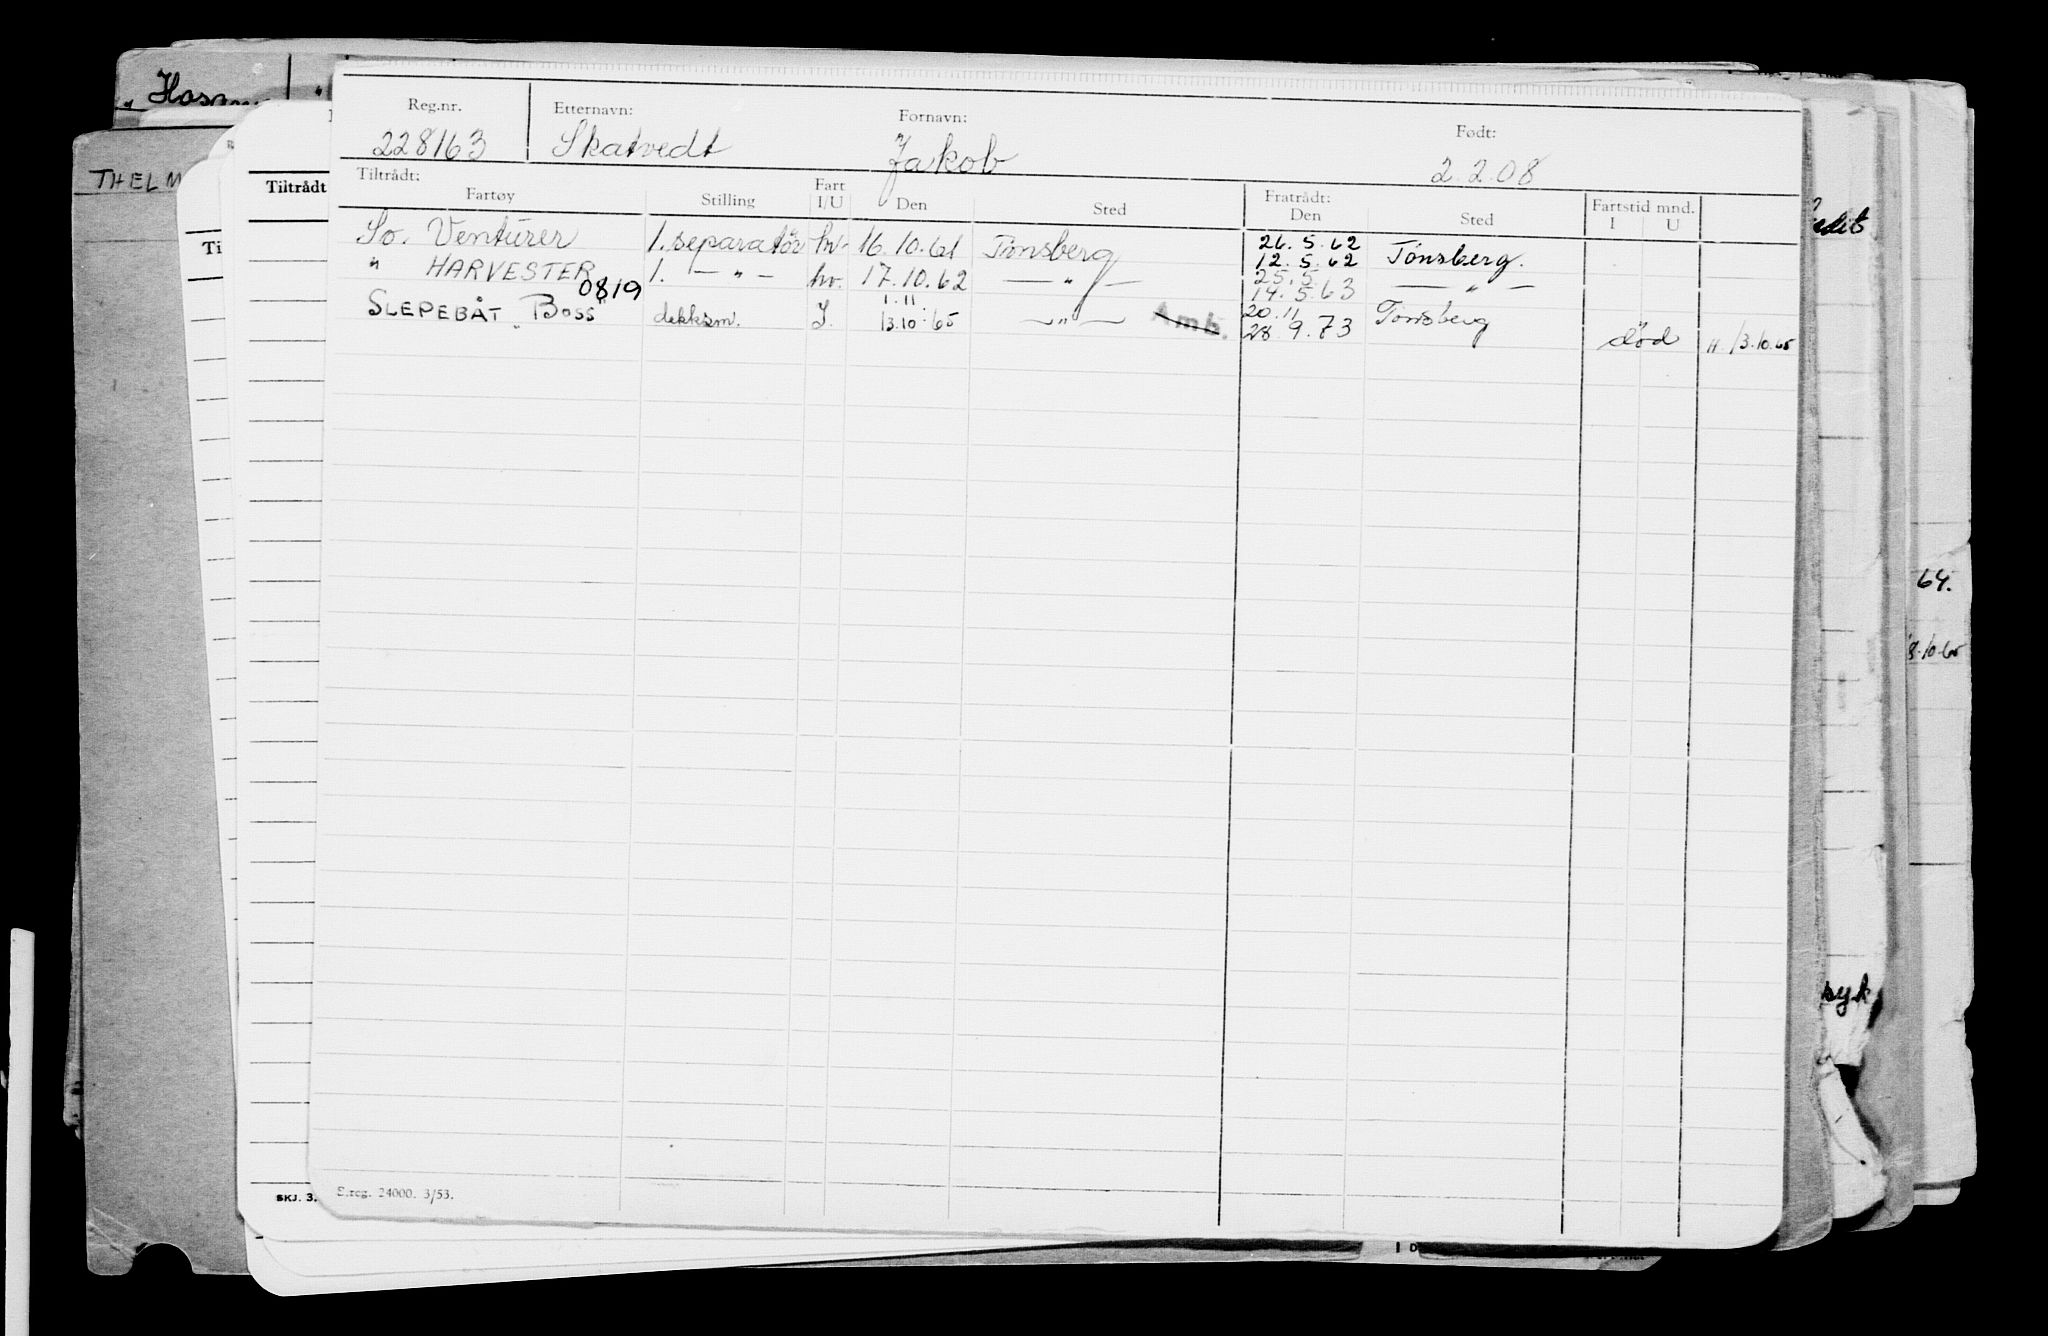 " Hosm
THELM
Tiltrådt
Ti
Reg.nr. Etternavn: Fornavn: Født:
228163 Skatvedt Jakob 2.2.08
Tiltrådt: Fratrådt: Fartstid mnd.
Fartøy Stilling Fart I/U Den Sted Den Sted I U
So. Venturer 1. separatør hv. 16.10.61 Tønsberg 26.5.62 Tønsberg.
12.5.62
" HARVESTER 1. — " — hv. 17.10.62 — " — 25.5 — " —
14.5.63
0819 1.11 20.11
SLEPEBÅT "BOSS" dekksm. I. 13.10.65 — " — Amb. 28.9.73 Tønsberg død H. 13.10.65
64.
8.10.65
syk
SKJ. 3.
S.reg. 24000. 3/53.